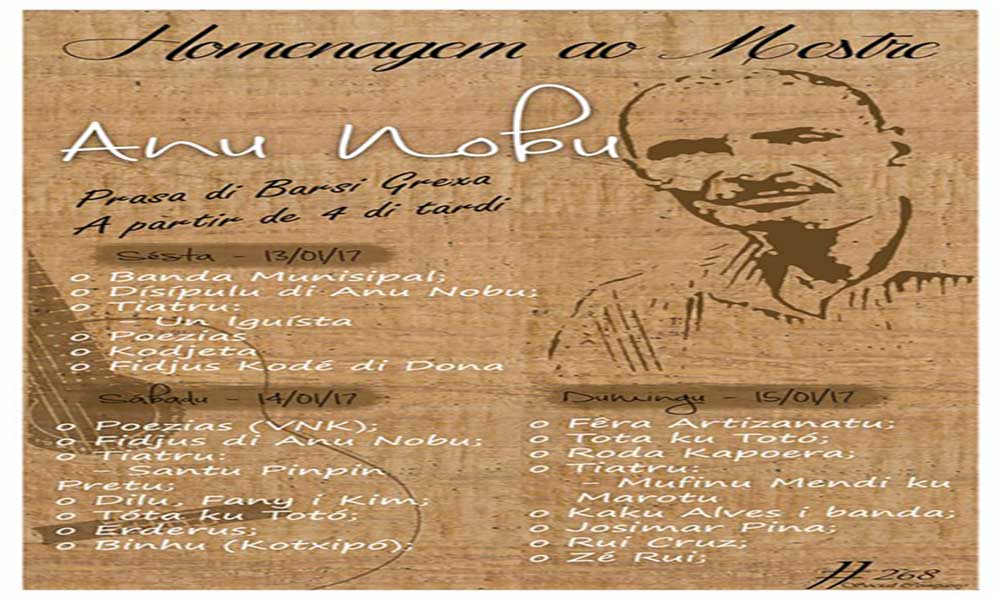 Homenagem ao Mestre
Anu Nobu
Prasa di Barsi Grexa
A partir de 4 di tardi
Sésta - 13/01/17
o Banda Munisipal;
o Disípulu di Anu Nobu;
o Tiatru:
- Un Iguísta
o Poezias
o Kodjeta
o Fidjus Kodé di Dona
Sábadu - 14/01/17
o Poezias (VNK);
o Fidjus di Anu Nobu;
o Tiatru:
- Santu Pinpin
Pretu;
o Dilu, Fany i Kim;
o Tóta ku Totó;
o Erderus;
o Binhu (Kotxipó);
Dumingu - 15/01/17
o Fêra Artizanatu;
o Tota ku Totó;
o Roda Kapoera;
o Tiatru:
- Mufinu Mendi ku
Marotu
o Kaku Alves i banda;
o Josimar Pina;
o Rui Cruz;
o Zé Rui;
268
Social Company